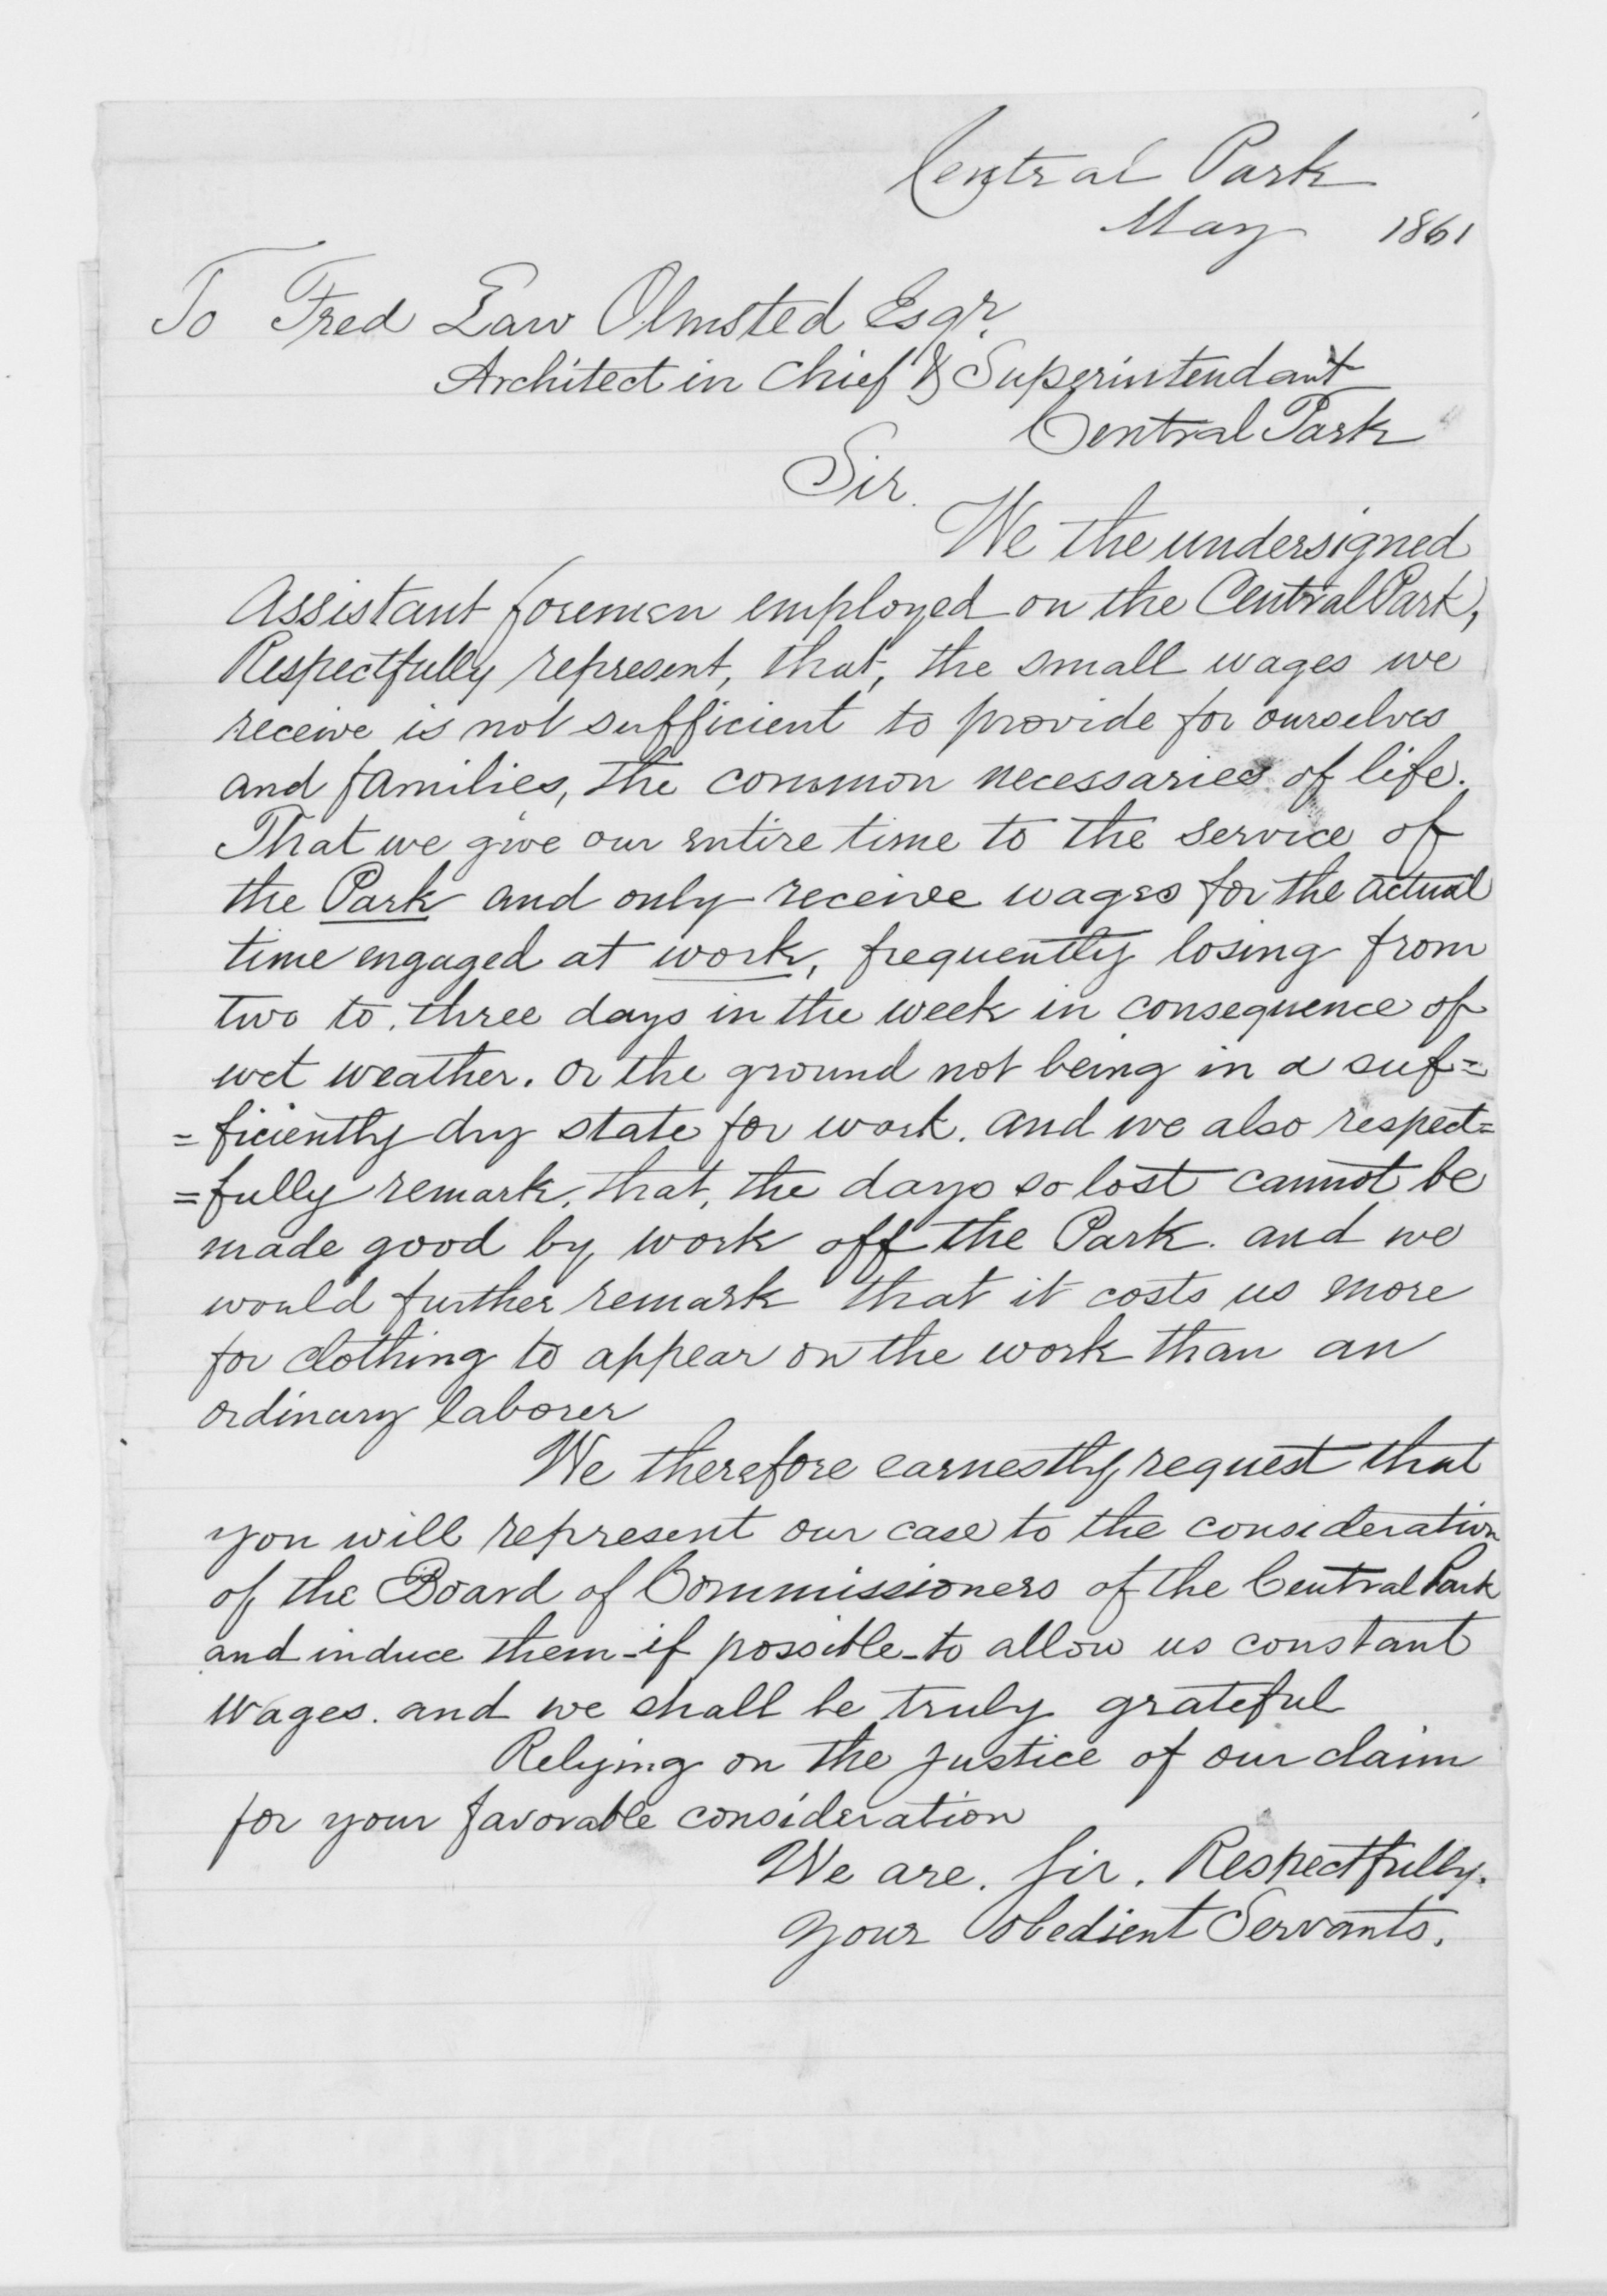 Central Park
May 1861
To Fred Law Olmsted Esqr.
Architect in Chief & Superintendant
Central Park
Sir.
We the undersigned
Assistant foremen employed on the Central Park,
Respectfully represent, that, the small wages we
receive is not sufficient to provide for ourselves
and families, the common necessaries of life.
That we give our entire time to the service of
the Park and only receive wages for the actual
time engaged at work, frequently losing from
two to three days in the week in consequence of
wet weather. or the ground not being in a suf=
=ficiently dry state for work. and we also respect=
=fully remark, that, the days so lost cannot be
made good by work off the Park. and we
would further remark that it costs us more
for clothing to appear on the work than an
ordinary laborer
We therefore earnestly request that
you will represent our case to the consideration
of the Board of Commissioners of the Central Park
and induce them - if possible - to allow us constant
wages. and we shall be truly grateful
Relying on the justice of our claim
for your favorable consideration
We are. Sir. Respectfully.
Your Obedient Servants.